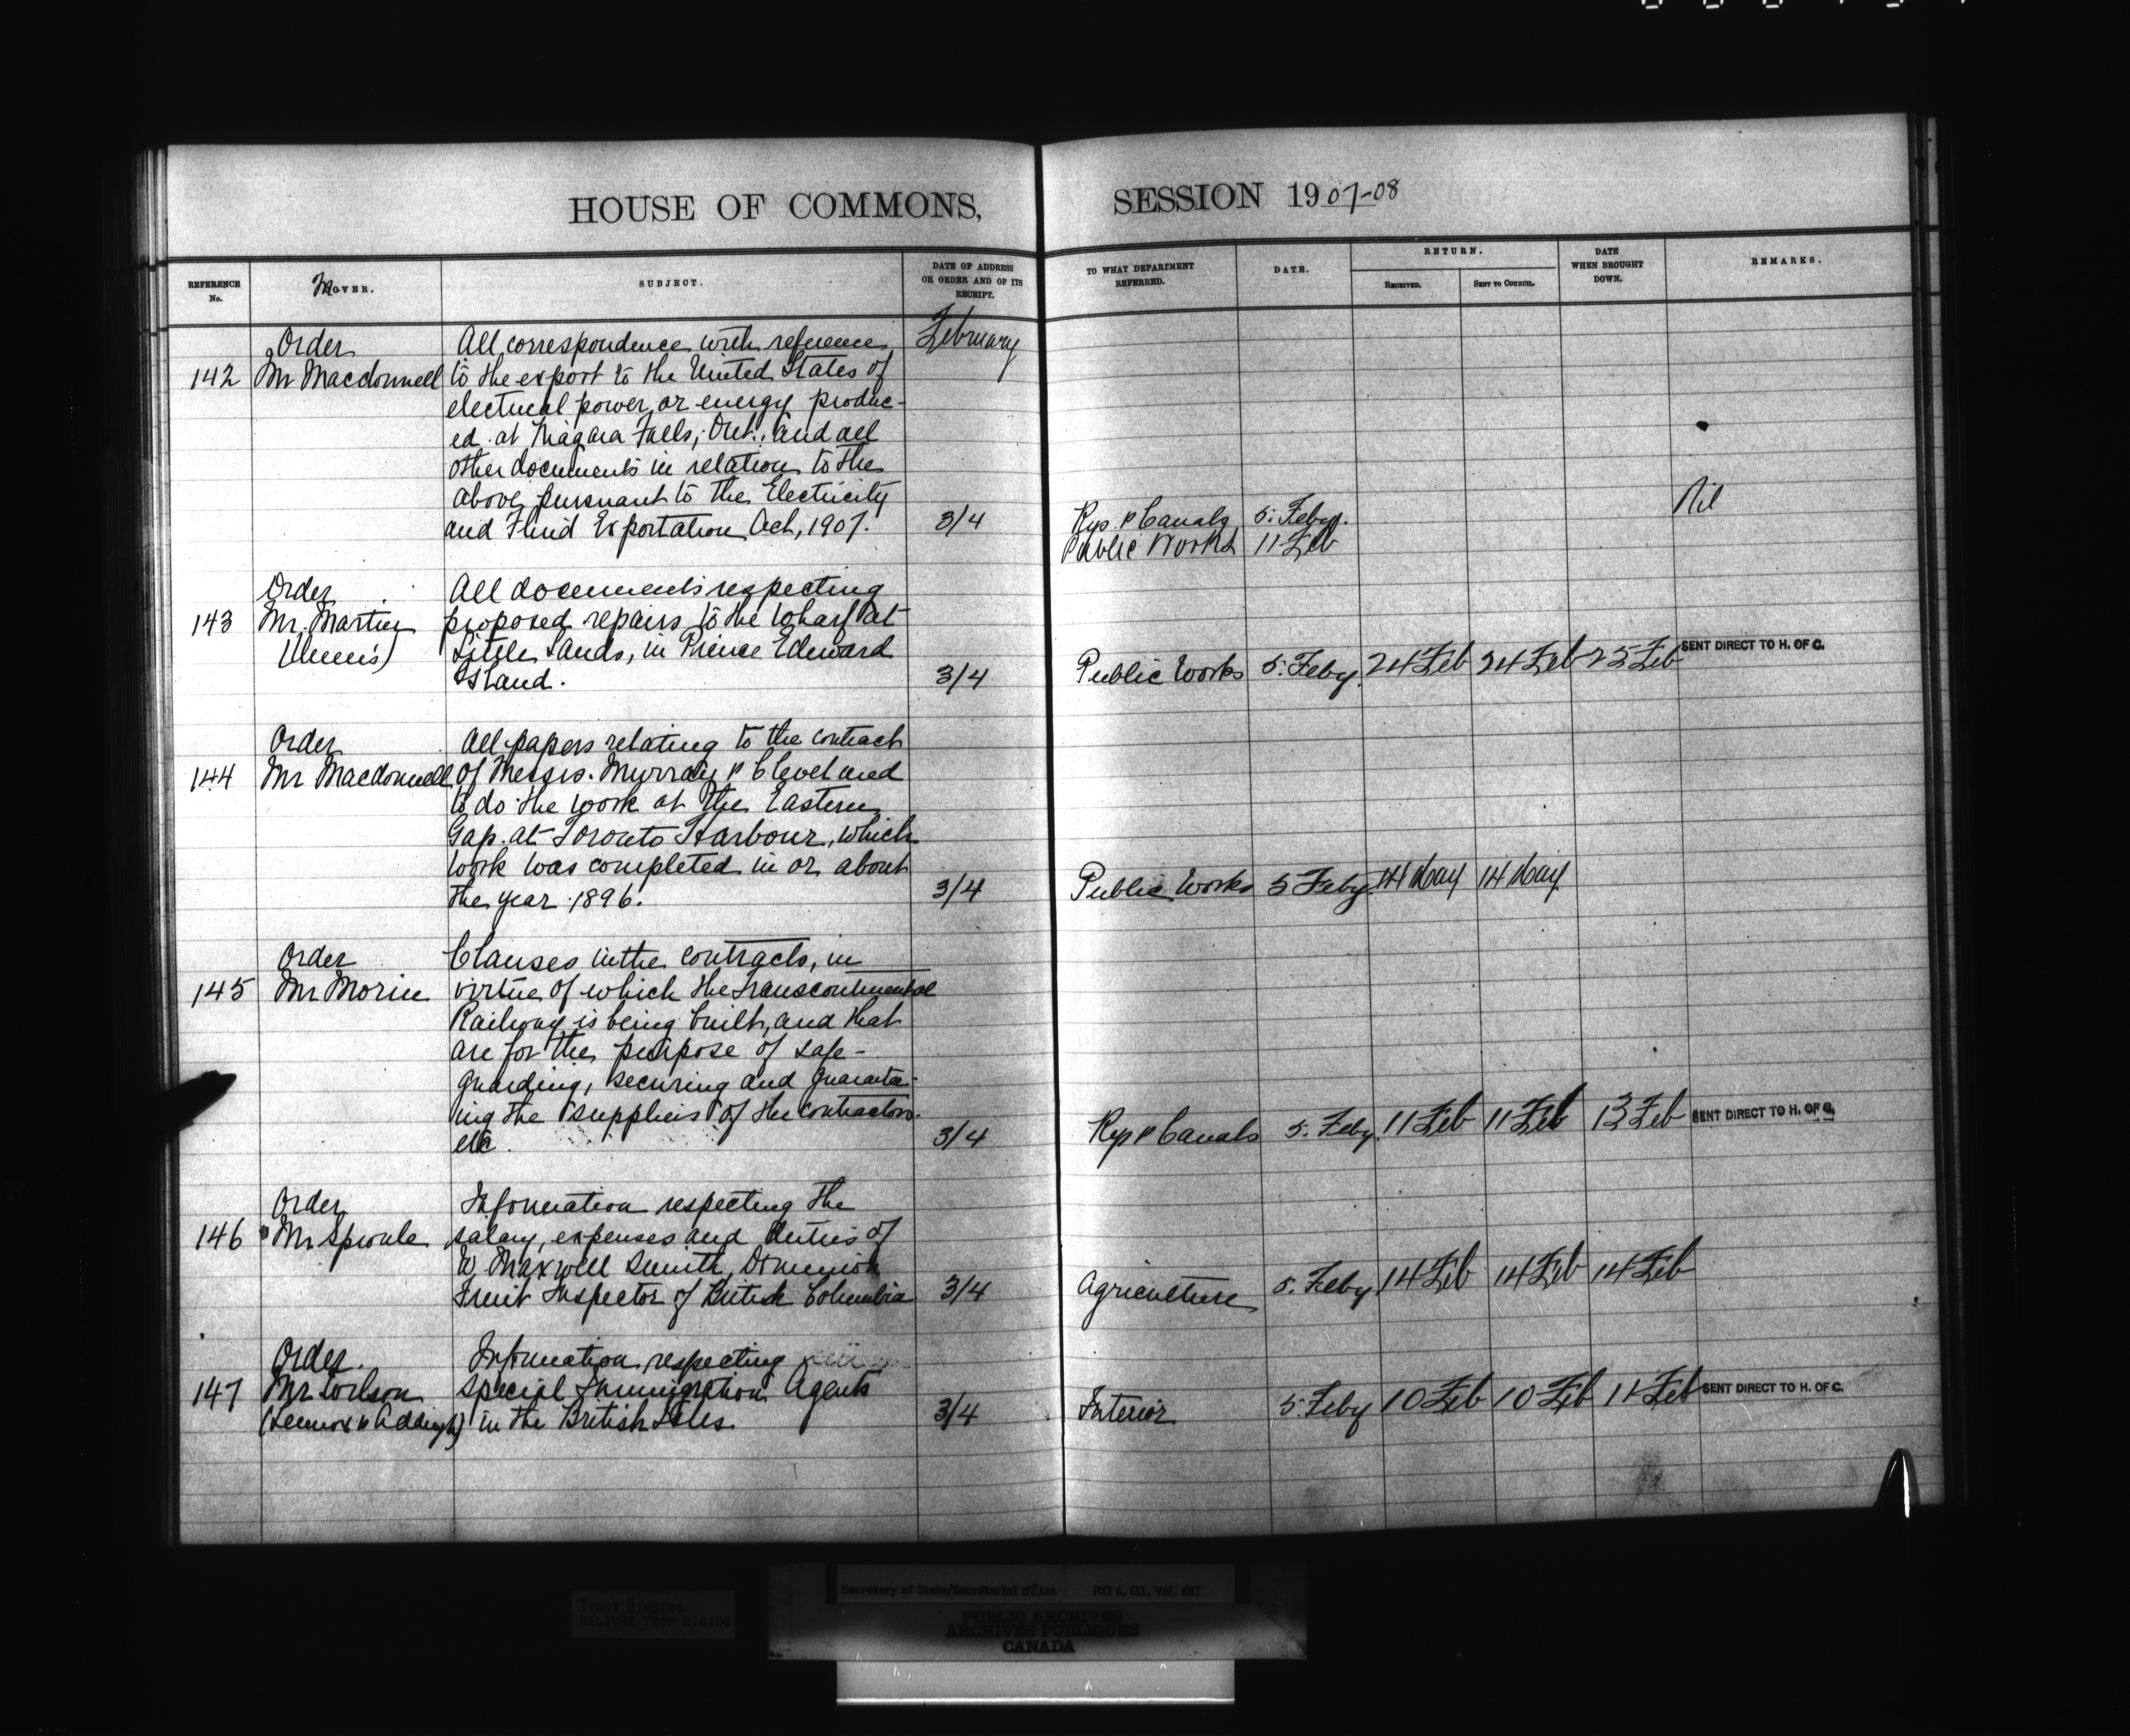 HOUSE OF COMMONS,
SESSION 1907-08
REFERENCE No.
MOVER.
SUBJECT.
DATE OF ADDRESS OR ORDER AND OF ITS RECEIPT.
TO WHAT DEPARTMENT REFERRED.
DATE.
RETURN.
RECEIVED.
SENT TO COUNCIL.
DATE WHEN BROUGHT DOWN.
REMARKS.
February
Order
142 Mr Macdonnell
All correspondence with reference
to the export to the United States of
electrical power or energy produc-
ed at Niagara Falls, Ont., and all
other documents in relation to the
above pursuant to the Electricity
and Fluid Exportation Act, 1907.
3/4
Rys & Canals 5. Feby.
Nil
Public Works 11 Feb
Order
143 Mr. Martin
(Queens)
All documents respecting
proposed repairs to the wharf at
Little Sands, in Prince Edward
Island.
3/4
Public Works 5. Feby. 24 Feb 24 Feb 25 Feb SENT DIRECT TO H. OF C.
Order
144 Mr Macdonnell
All papers relating to the contract
of Messrs. Murray & Cleveland
to do the work at the Eastern
Gap at Toronto Harbour, which
work was completed in or about
the year 1896.
3/4
Public Works 5 Feby. 14 May 14 May
Order
145 Mr Morin
Clauses in the contracts, in
virtue of which the Transcontinental
Railway is being built, and that
are for the purpose of safe-
guarding, securing and guarantee-
ing the suppliers of the contractors.
etc.
3/4
Rys & Canals 5. Feby. 11 Feb 11 Feb 13 Feb SENT DIRECT TO H. OF C.
Order
146 Mr Sproule
Information respecting the
salary, expenses and duties of
W Maxwell Smith, Dominion
Fruit Inspector of British Columbia
3/4
Agriculture 5. Feby 14 Feb 14 Feb 14 Feb
Order.
147 Mr Wilson
(Lennox & Addington)
Information respecting
special Immigration Agents
in the British Isles.
3/4
Interior 5. Feby 10 Feb 10 Feb 11 Feb SENT DIRECT TO H. OF C.
Secretary of State/Secrétariat d'État RG 6, G1, Vol.
TIGHT BINDING
RELIURE TROP RIGIDE
PUBLIC ARCHIVES
ARCHIVES PUBLIQUES
CANADA